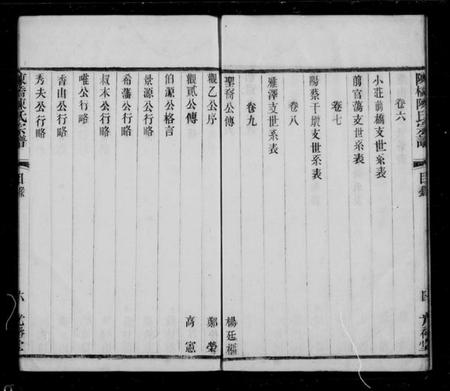 陳氏宗譜
目錄
卷六
小莊前橋支世系表
前官蕩支世系表
卷七
陽蔡干墩支世系表
卷八
雅澤支世系表
卷九
聖齊公傳 楊廷樞
觀乙公序 鄭榮
觀貳公傳 高憲
伯源公格言
景源公行略
希藩公行略
叔本公行略
唯公行略
香山公行略
秀夫公行略
陳氏宗譜
目錄